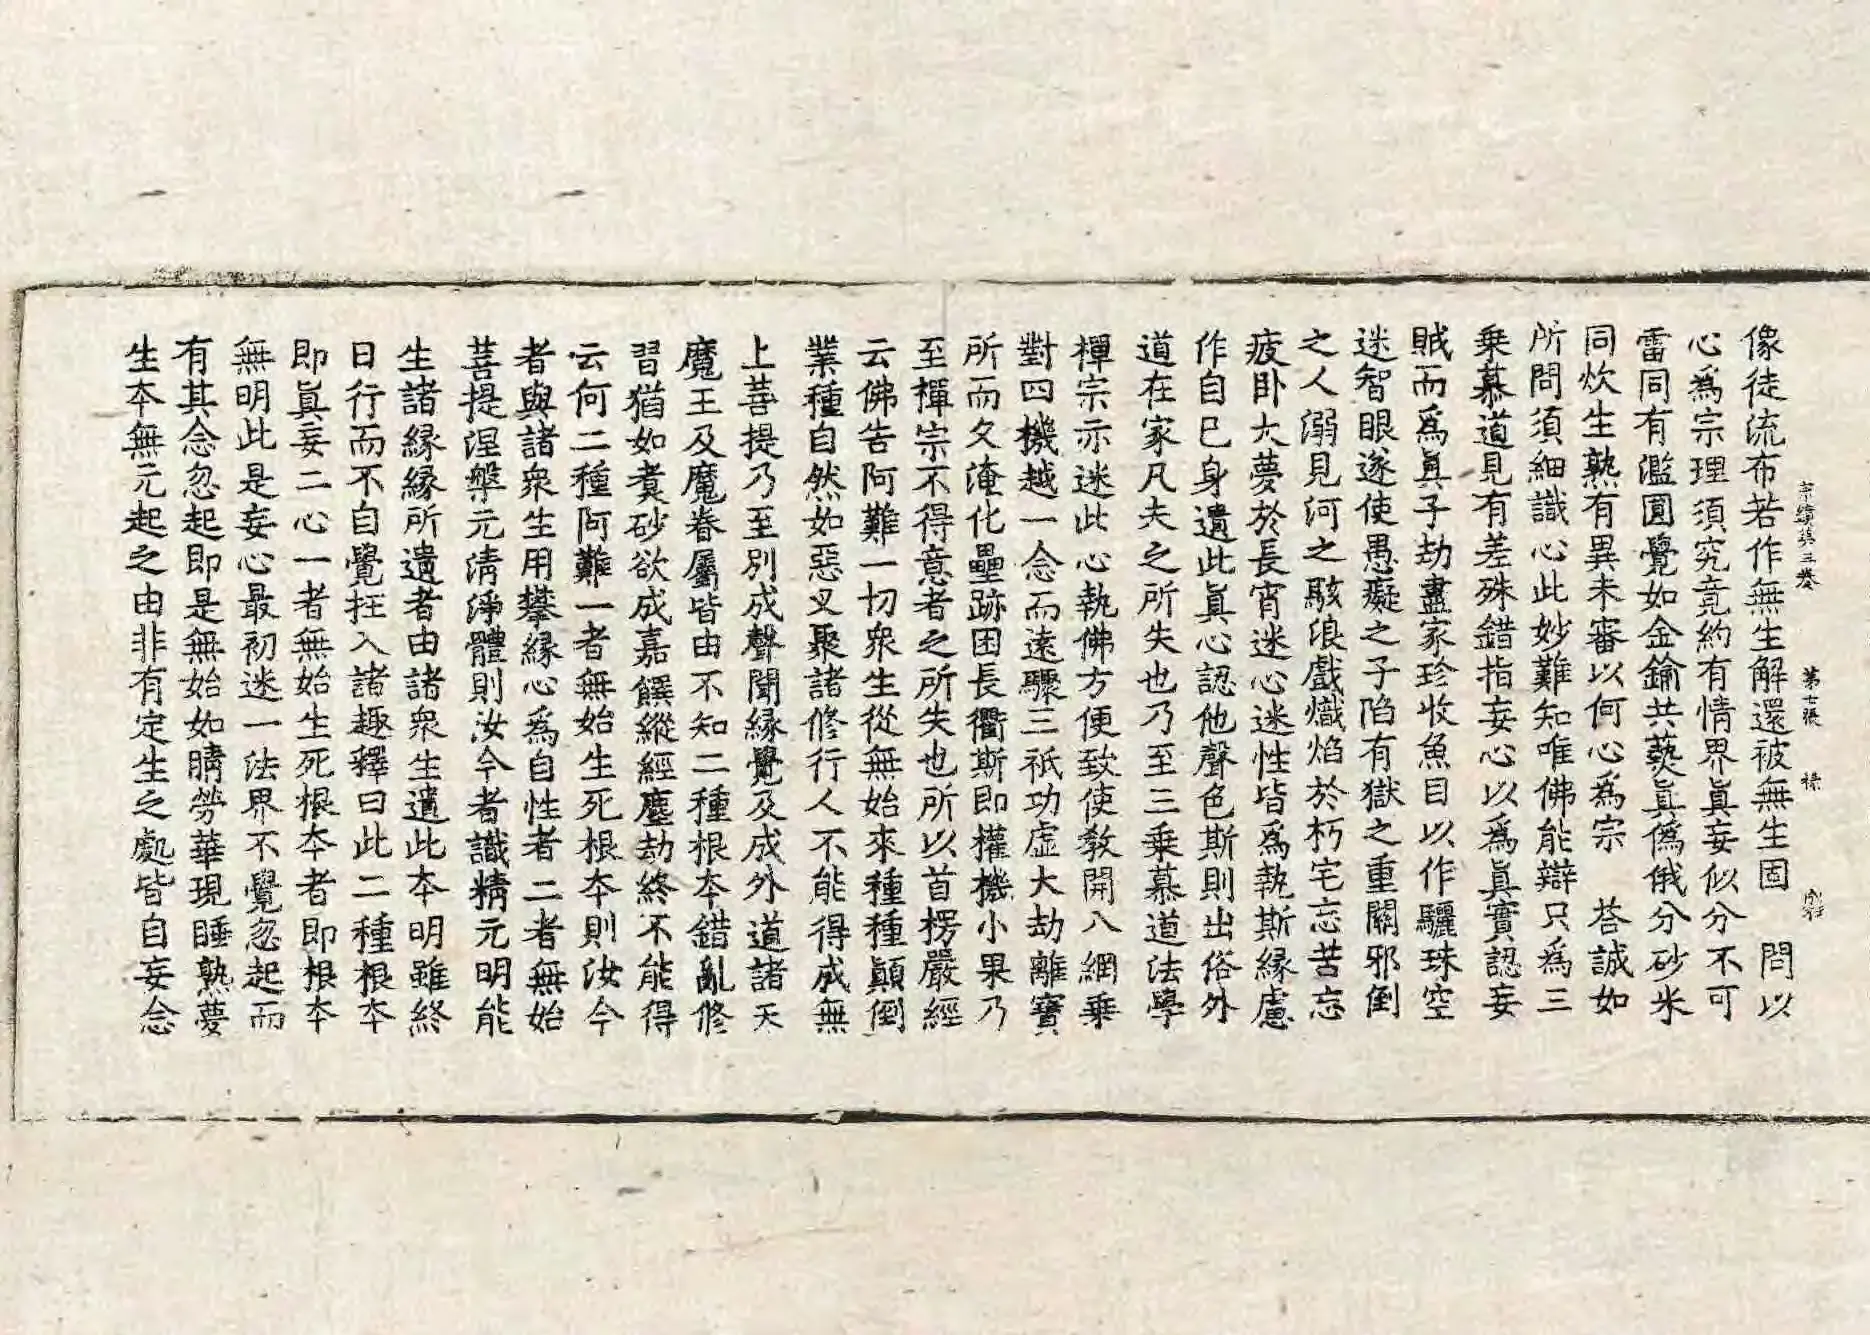 宗鏡錄三卷 第七張 祿
像徒流布若作無生解還被無生固 問以
心爲宗理須究竟約有情界眞妄似分不可
雷同有濫圓覺如金鍮共爇眞僞俄分砂米
同炊生熟有異未審以何心爲宗 荅誠如
所問須細識心此妙難知唯佛能辯只爲三
乗慕道見有差殊錯指妄心以爲眞實認妄
賊而爲眞子劫盡家珍收魚目以作驪珠空
迷智眼遂使愚癡之子陷有獄之重關邪倒
之人溺見河之駭浪戲熾焰於朽宅忘苦忘
疲卧大夢於長宵迷心迷性皆爲執斯緣慮
作自巳身遺此眞心認他聲色斯則出俗外
道在家凡夫之所失也乃至三乗慕道法學
禪宗亦迷此心執佛方便致使教開八網乗
對四機越一念而遠驟三祇功虛大劫離寶
所而久淹化壘跡困長衢斯即權機小果乃
至禪宗不得意者之所失也所以首楞嚴經
云佛告阿難一切衆生從無始來種種顚倒
業種自然如惡叉聚諸修行人不能得成無
上菩提乃至別成聲聞緣覺及成外道諸天
魔王及魔眷屬皆由不知二種根本錯亂修
習猶如煑砂欲成嘉饌縱經塵劫終不能得
云何二種阿難一者無始生死根本則汝今
者與諸衆生用攀緣心爲自性者二者無始
菩提涅槃元清淨體則汝今者識精元明能
生諸緣緣所遺者由諸衆生遺此本明雖終
日行而不自覺抂入諸趣釋曰此二種根本
即眞妄二心一者無始生死根本者即根本
無明此是妄心最初迷一法界不覺忽起而
有其念忽起即是無始如睛勞華現睡熟夢
生本無元起之由非有定生之處皆自妄念